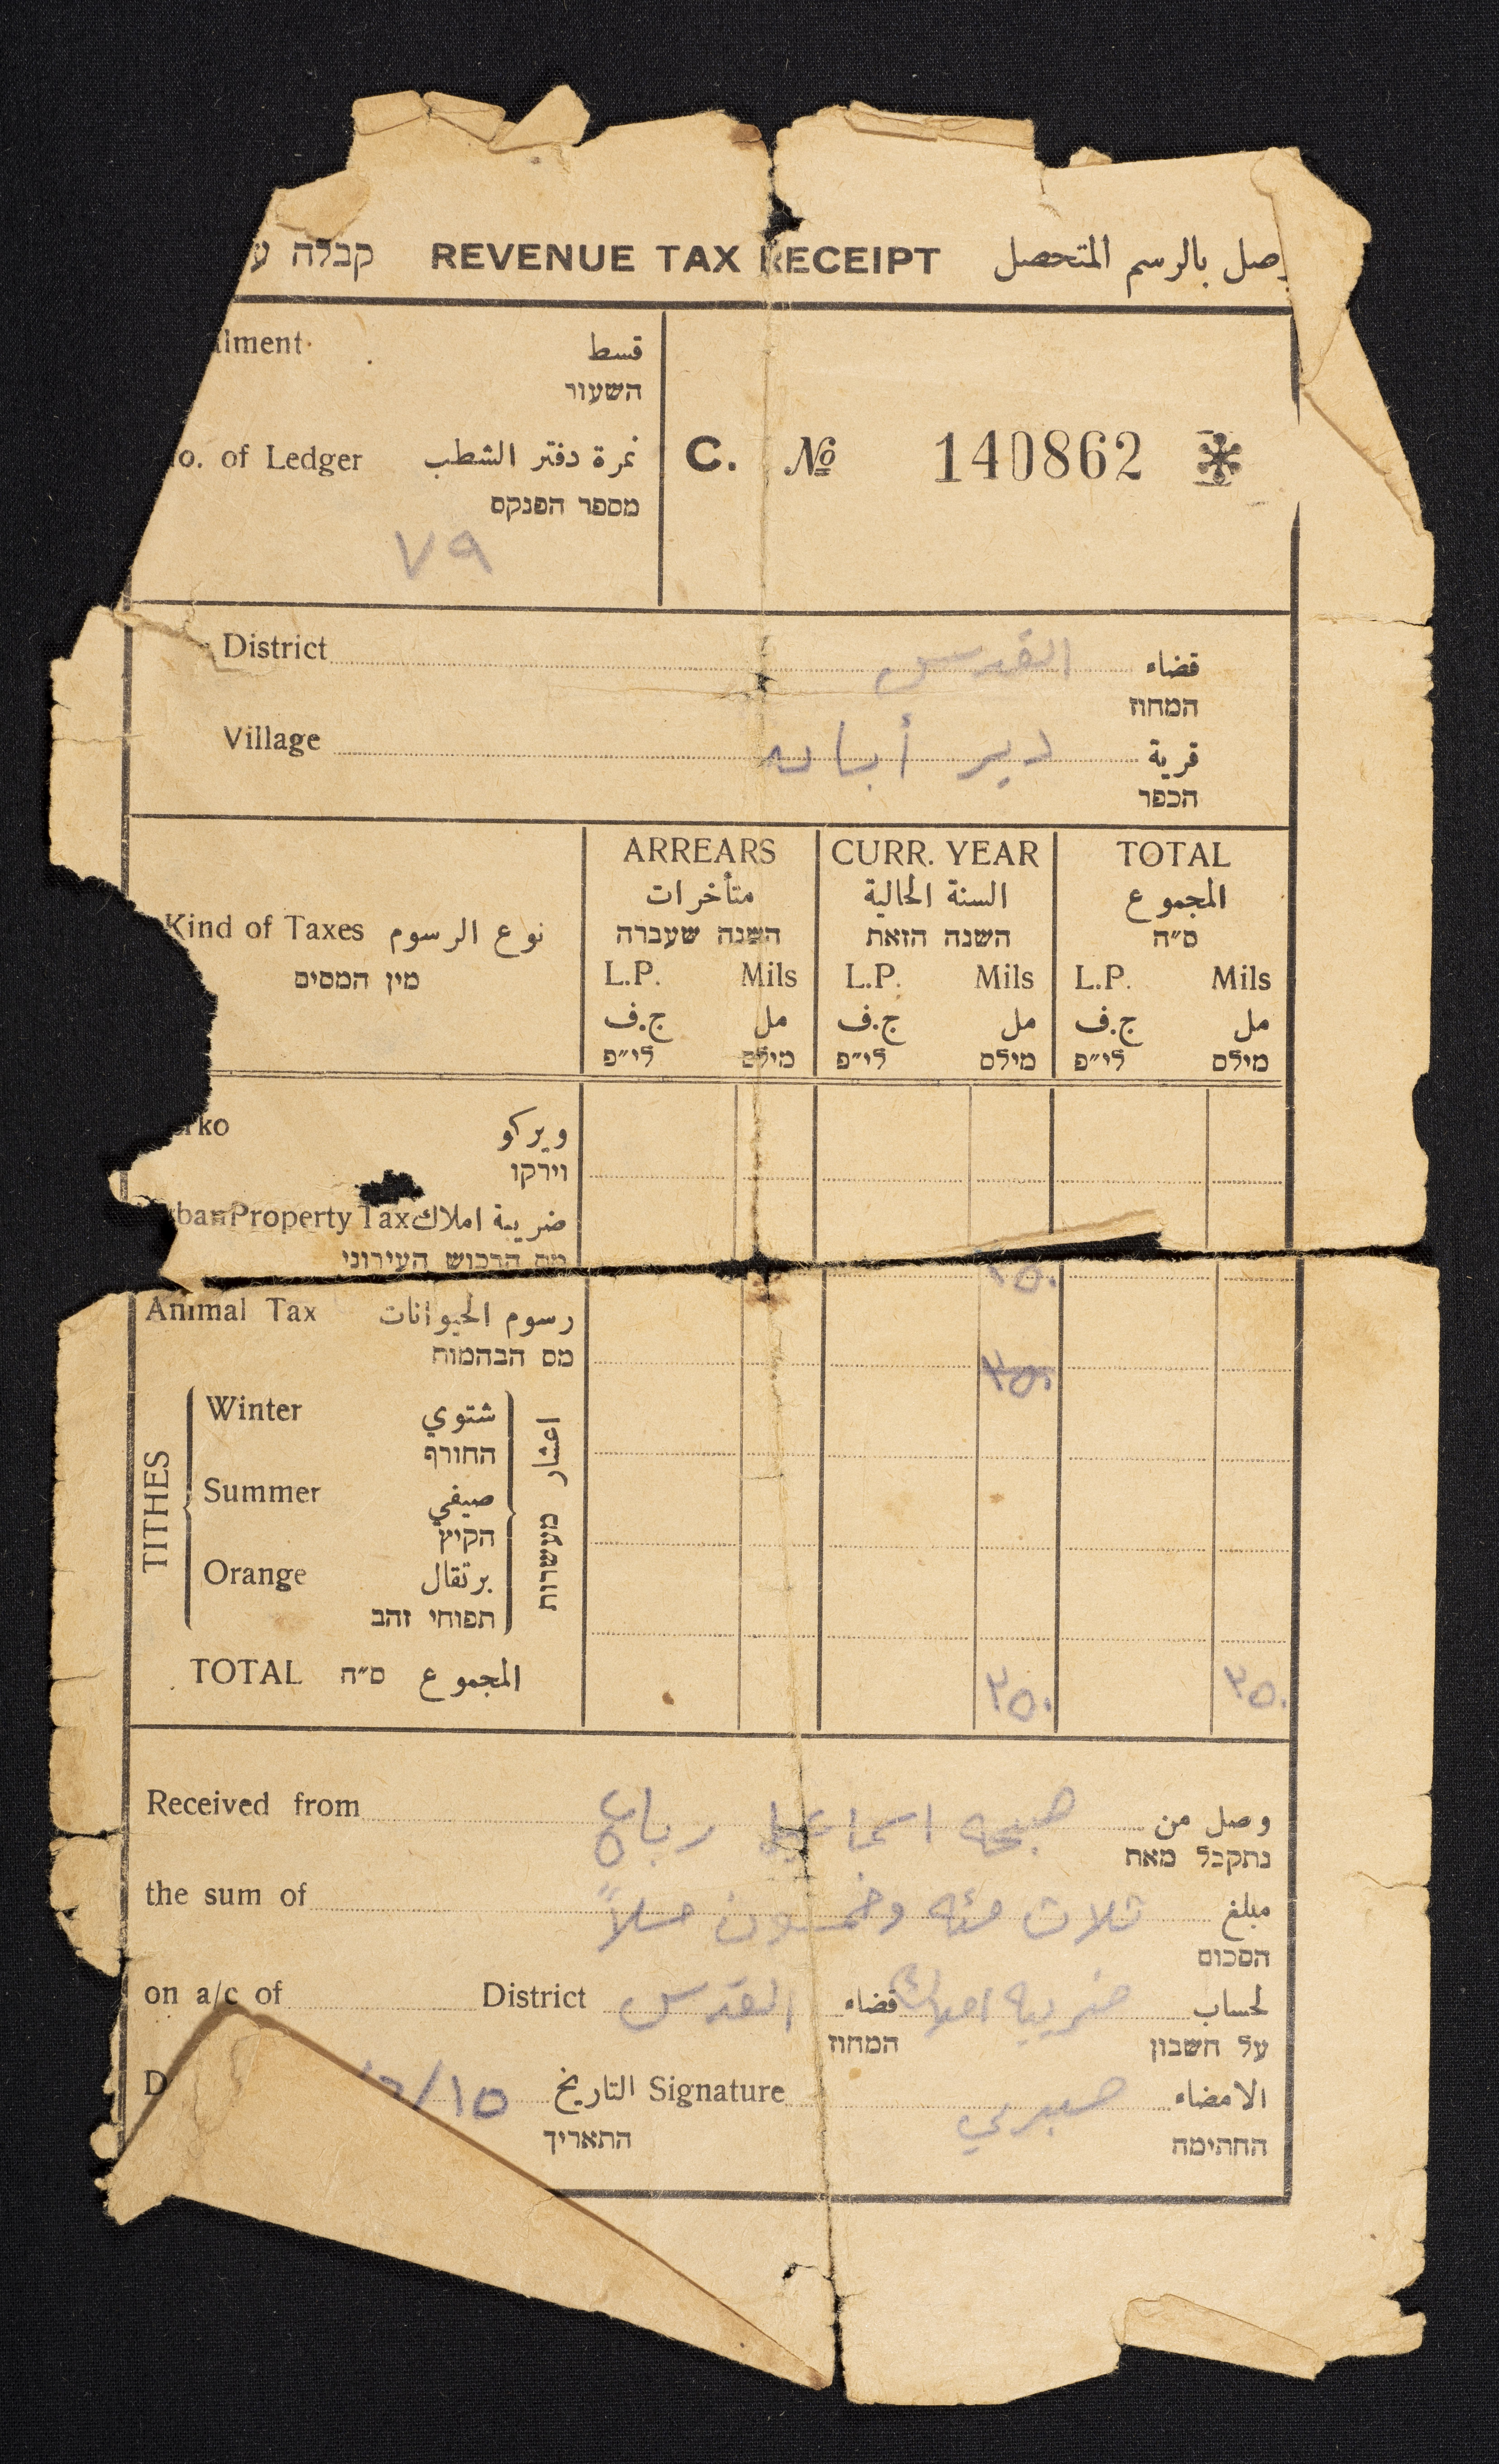 קבלה ע REVENUE TAX RECEIPT وصل بالرسم المتحصل
lment قسط
השעור
No. of Ledger نمرة دفتر الشطب
מספר הפנקס
٧٩
C. № 140862
District القدس قضاء
המחוז
Village دير أبان قرية
הכפר
Kind of Taxes نوع الرسوم
מין המסים
ARREARS CURR. YEAR TOTAL
متأخرات السنة الحالية المجموع
השנה שעברה השנה הזאת ס״ה
L.P. Mils L.P. Mils L.P. Mils
ج.ف مل ج.ف مل ج.ف مل
לי״פ מילס לי״פ מילס לי״פ מילס
rko ويركو
וירקו
ban Property Tax ضريبة املاك
מס הרכוש העירוני
٣٥٠
Animal Tax رسوم الحيوانات
מס הבהמות
٣٥٠
TITHES
Winter شتوي
החורף
Summer صيفي
הקיץ
Orange برتقال
תפוחי זהב
اعشار
מעשרות
TOTAL ס״ה المجموع ٣٥٠ ٣٥٠
Received from صبحه اسماعيل رباح وصل من
נתקבל מאת
the sum of ثلاث مئه وخمسون ملاً مبلغ
הסכום
on a/c of District القدس قضاء ضريبة املاك لحساب
המחוז על חשבון
D ١٥/ التاريخ Signature صبري الامضاء
התאריך החתימה